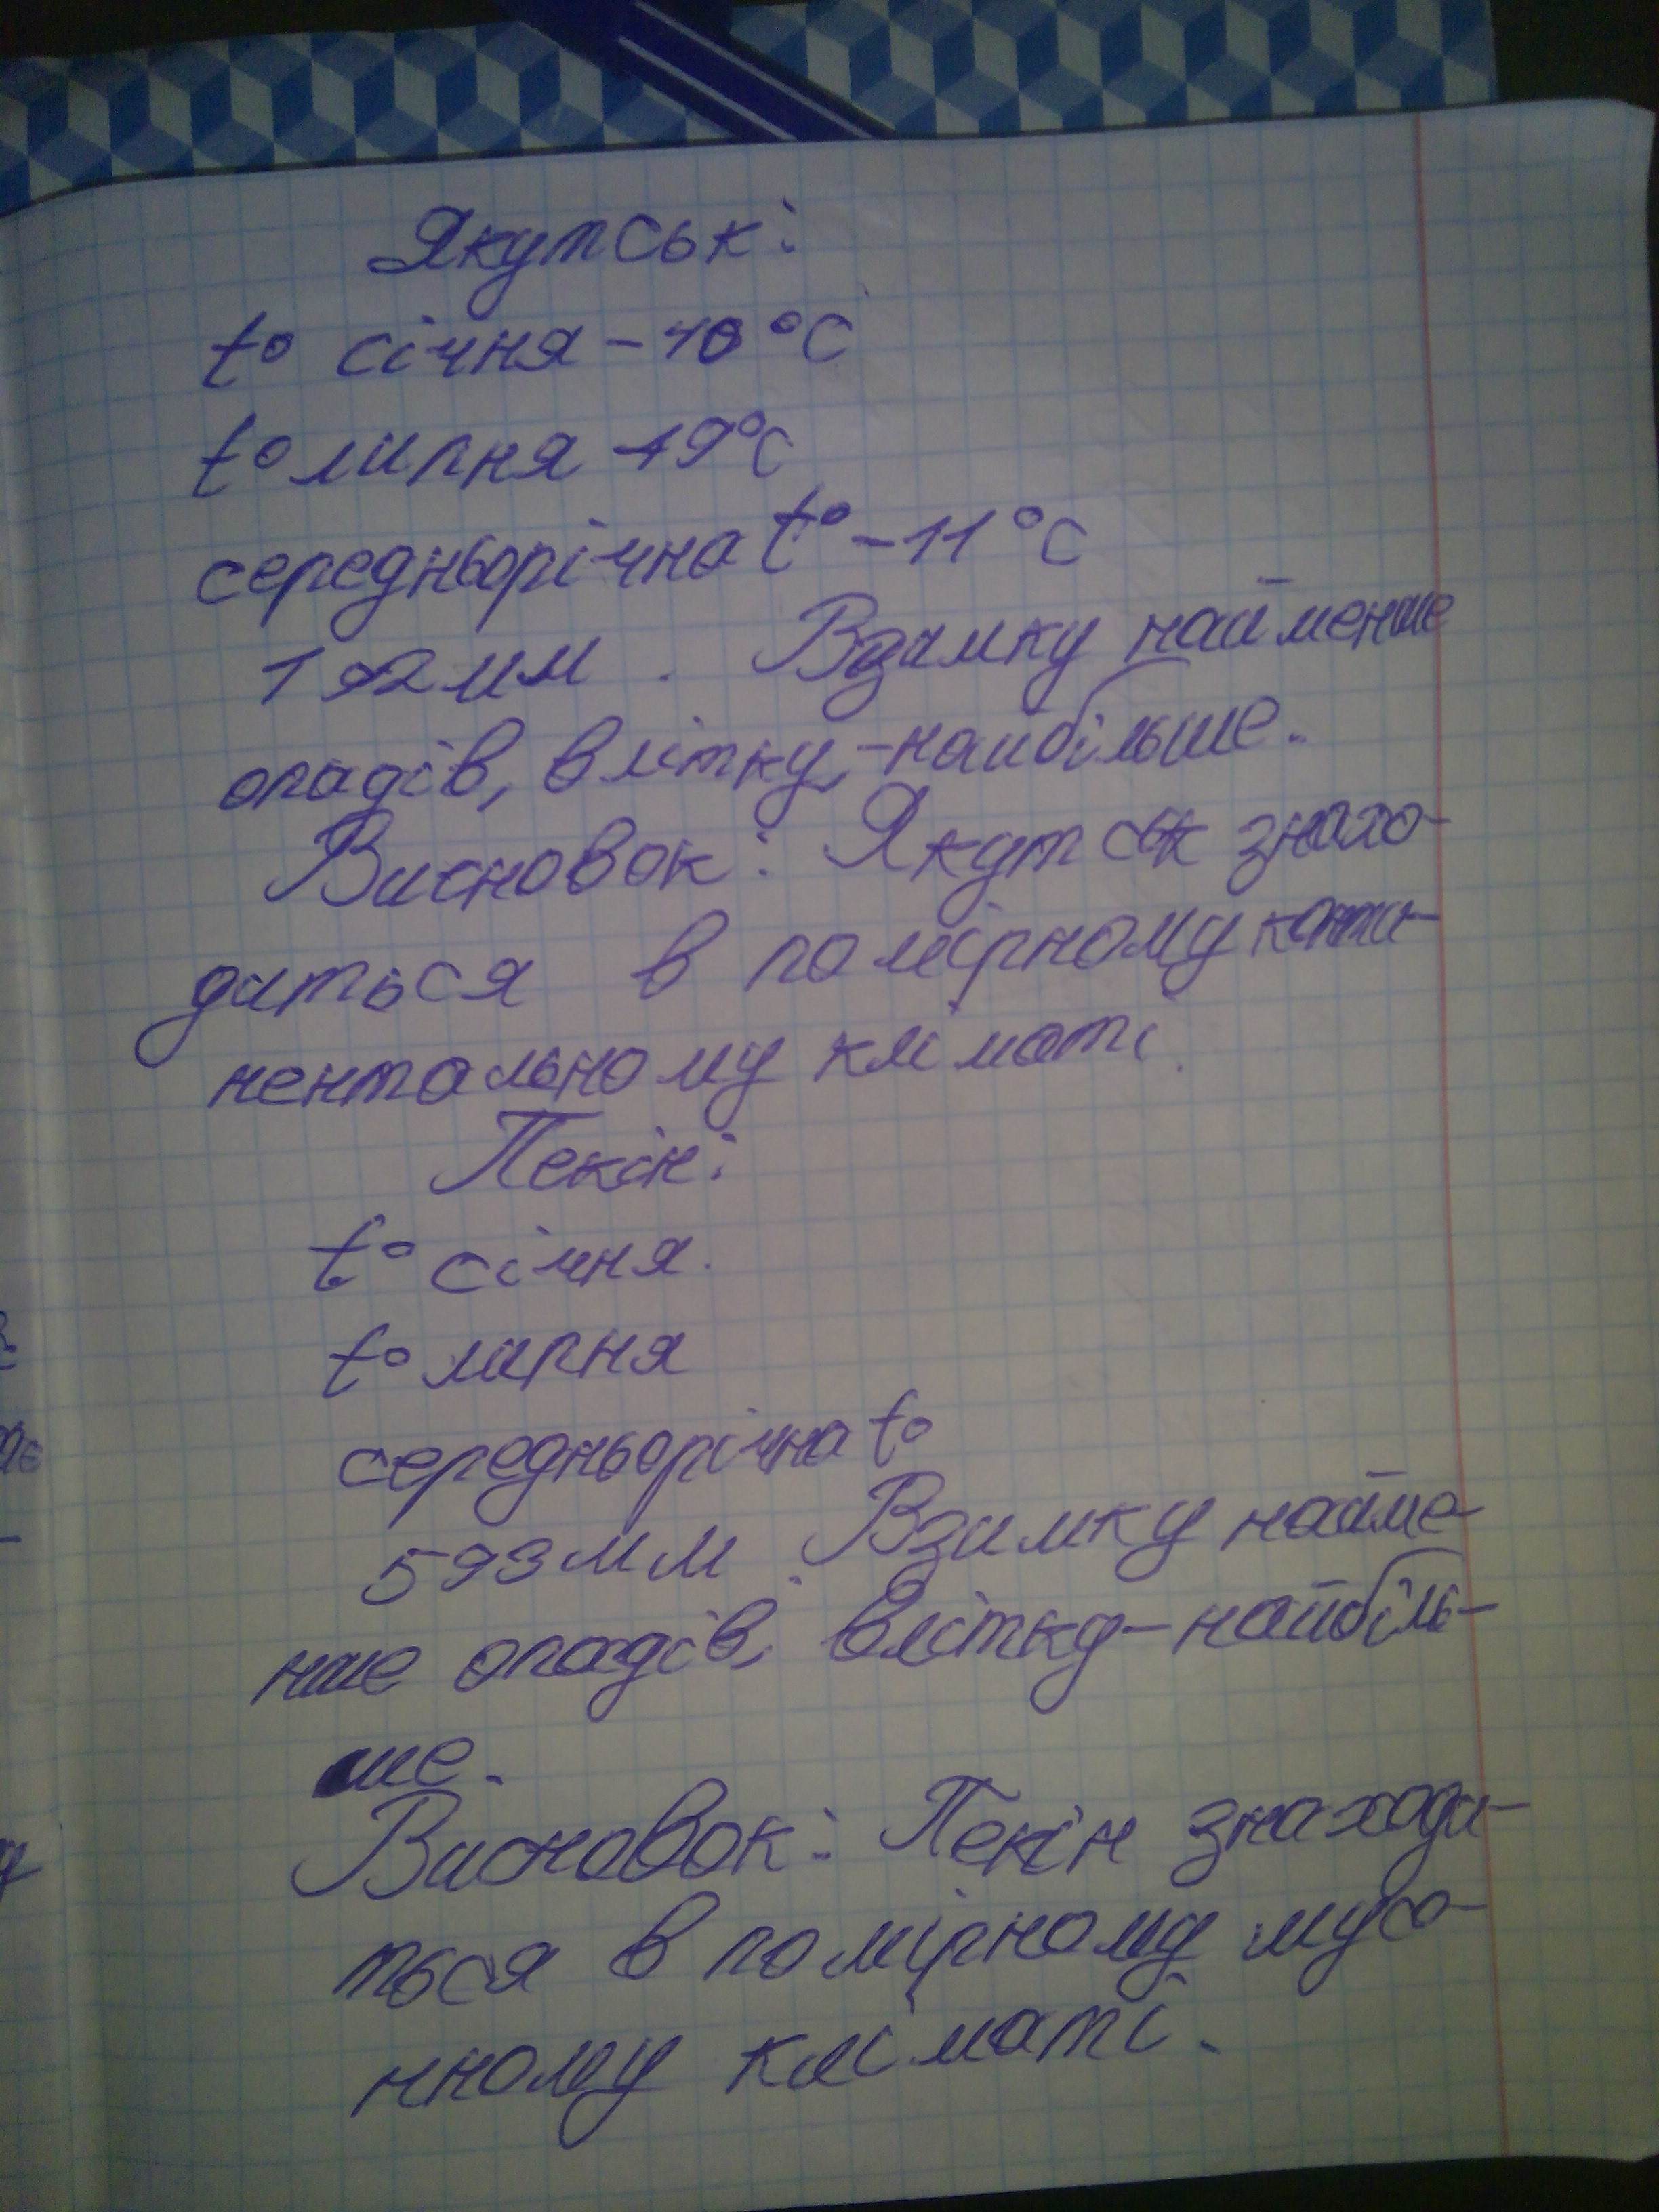 Якутськ:
t° січня -40 °C
t° липня 19°C
середньорічна t° -11 °C
192мм. Взимку найменше
опадів, влітку, -найбільше.
Висновок: Якутськ знахо-
диться в помірному конти-
нентальному кліматі.
Пекін:
t° січня.
t° липня
середньорічна t°
593мм. Взимку найме-
нше опадів, влітку-найбіль-
ше.
Висновок: Пекін знаходи-
ться в помірному мусо-
нному кліматі.